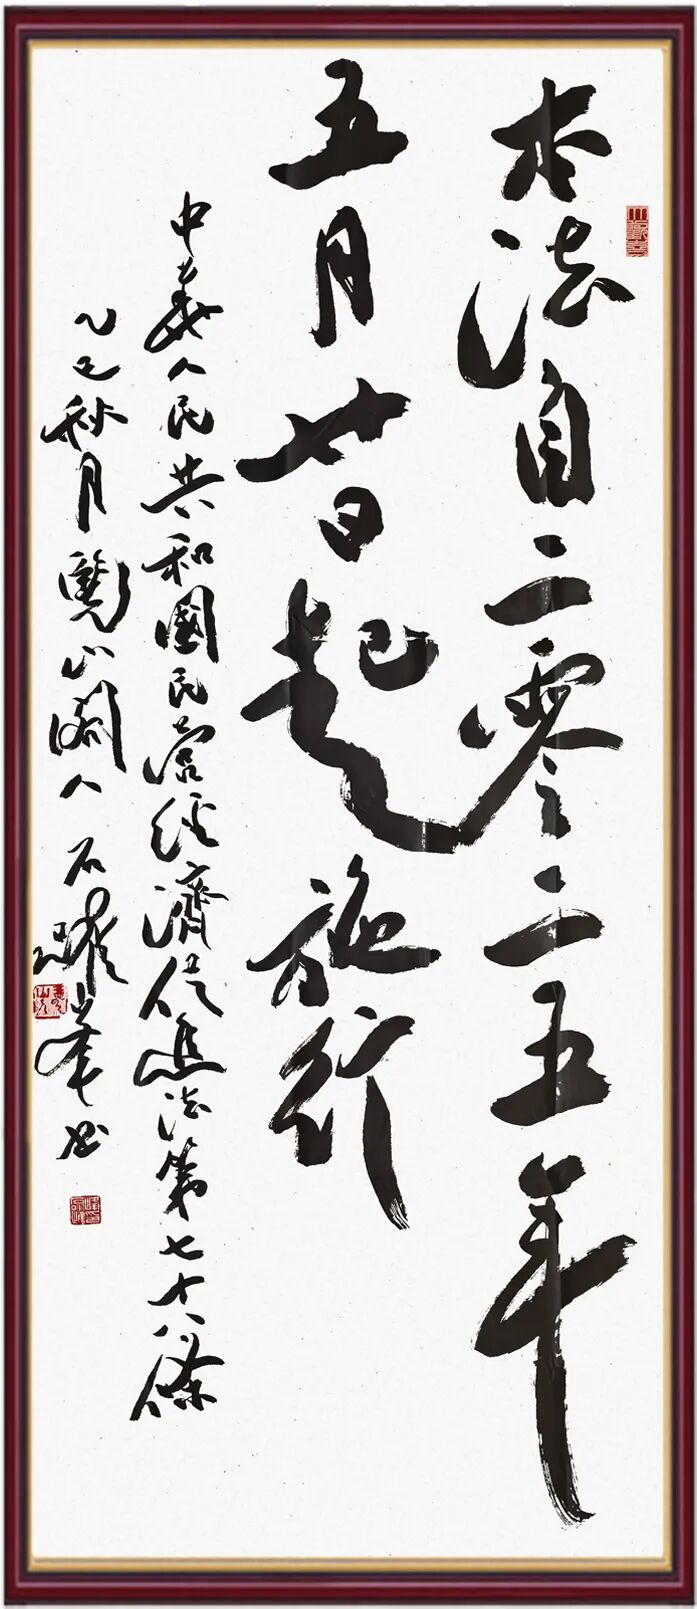 本法自二零二五年
五月廿日起施行
中華人民共和國民營經濟促進法第七十八條
乙巳秋月山人石躍峯書